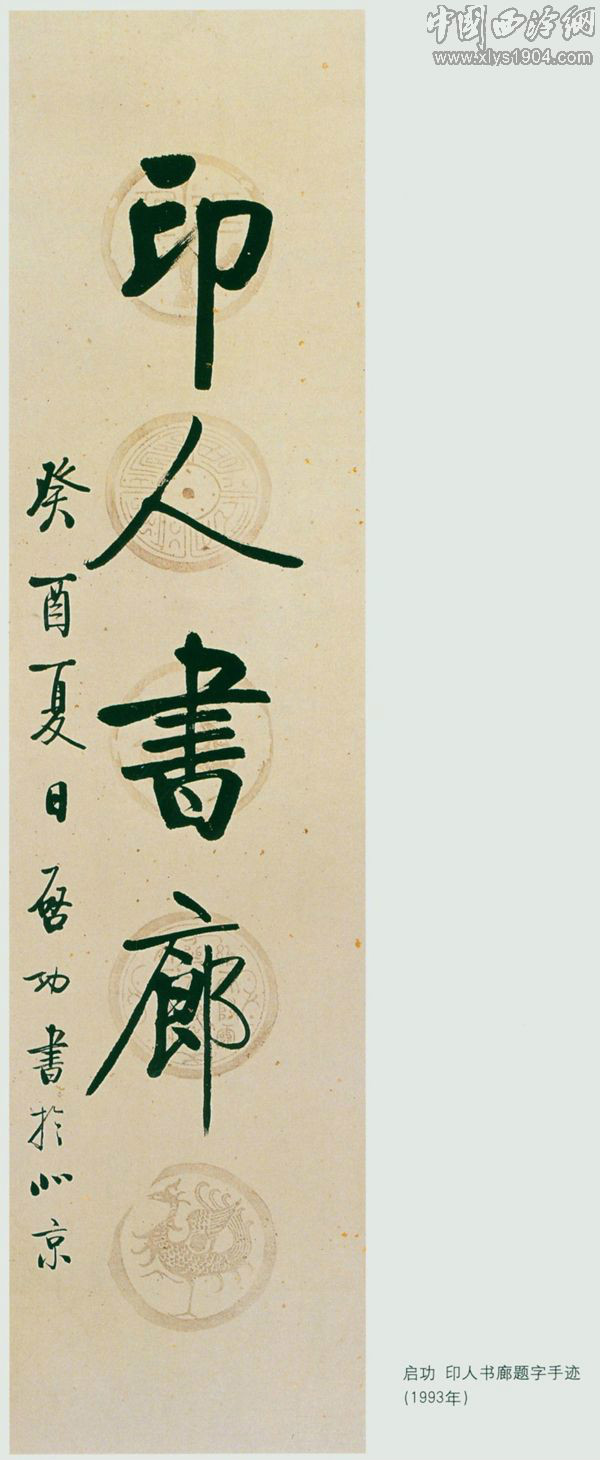 中国西泠網
www.xlys1904.com
印人書廊
癸酉夏日啓功書於北京
启功 印人书廊题字手迹
(1993年)